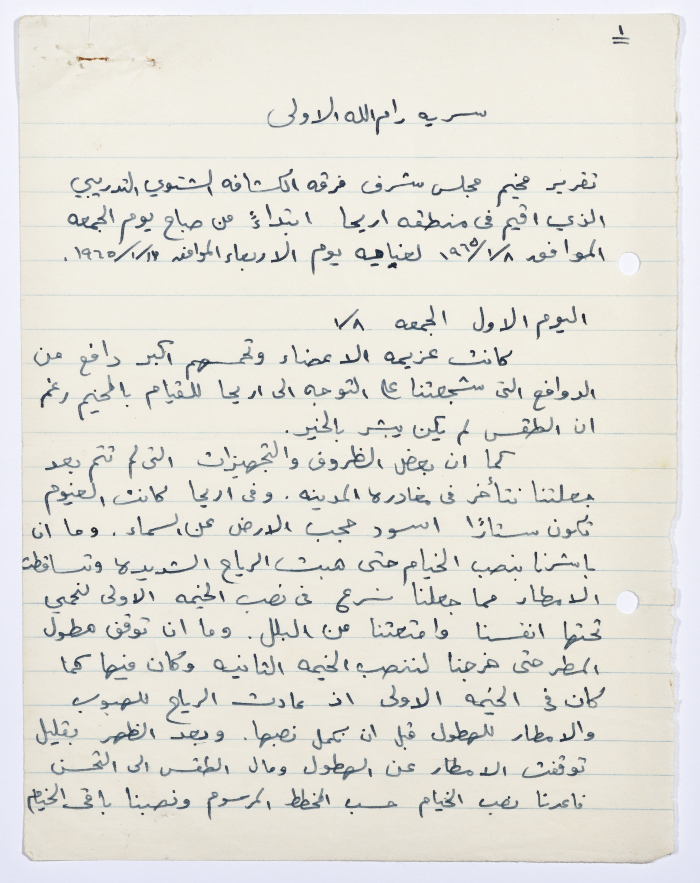 ١
سريه رام الله الاولى
تقرير مخيم مجلس شرف فرقه الكشافه الشتوي التدريبي
الذي اقيم في منطقه اريحا ابتداءً من صباح يوم الجمعه
الموافق ١٩٦٥/١/٨ لغايه يوم الاربعاء الموافق ١٩٦٥/١/١٣ .
اليوم الاول الجمعه ١/٨
كانت عزيمه الاعضاء وتحمسهم اكبر دافع من
الدوافع التي شجعتنا على التوجه الى اريحا للقيام بالمخيم رغم
ان الطقس لم يكن يبشر بالخير .
كما ان بعض الظروف والتجهيزات التي لم تتم بعد
جعلتنا نتأخر في مغادره المدينه . وفي اريحا كانت الغيوم
تكون ستارًا اسود حجب الارض عن السماء . وما ان
باشرنا بنصب الخيام حتى هبت الرياح الشديده وتساقطت
الامطار مما جعلنا نسرع في نصب الخيمه الاولى لنحمي
تحتها انفسنا وامتعتنا من البلل . وما ان توقف هطول
المطر حتى خرجنا لننصب الخيمه الثانيه وكان فيها كما
كان في الخيمه الاولى اذ عادت الرياح للهبوب
والامطار للهطول قبل ان يكمل نصبها . وبعد الظهر بقليل
توقفت الامطار عن الهطول ومال الطقس الى التحسن
فاعدنا نصب الخيام حسب المخطط المرسوم ونصبنا باقي الخيام